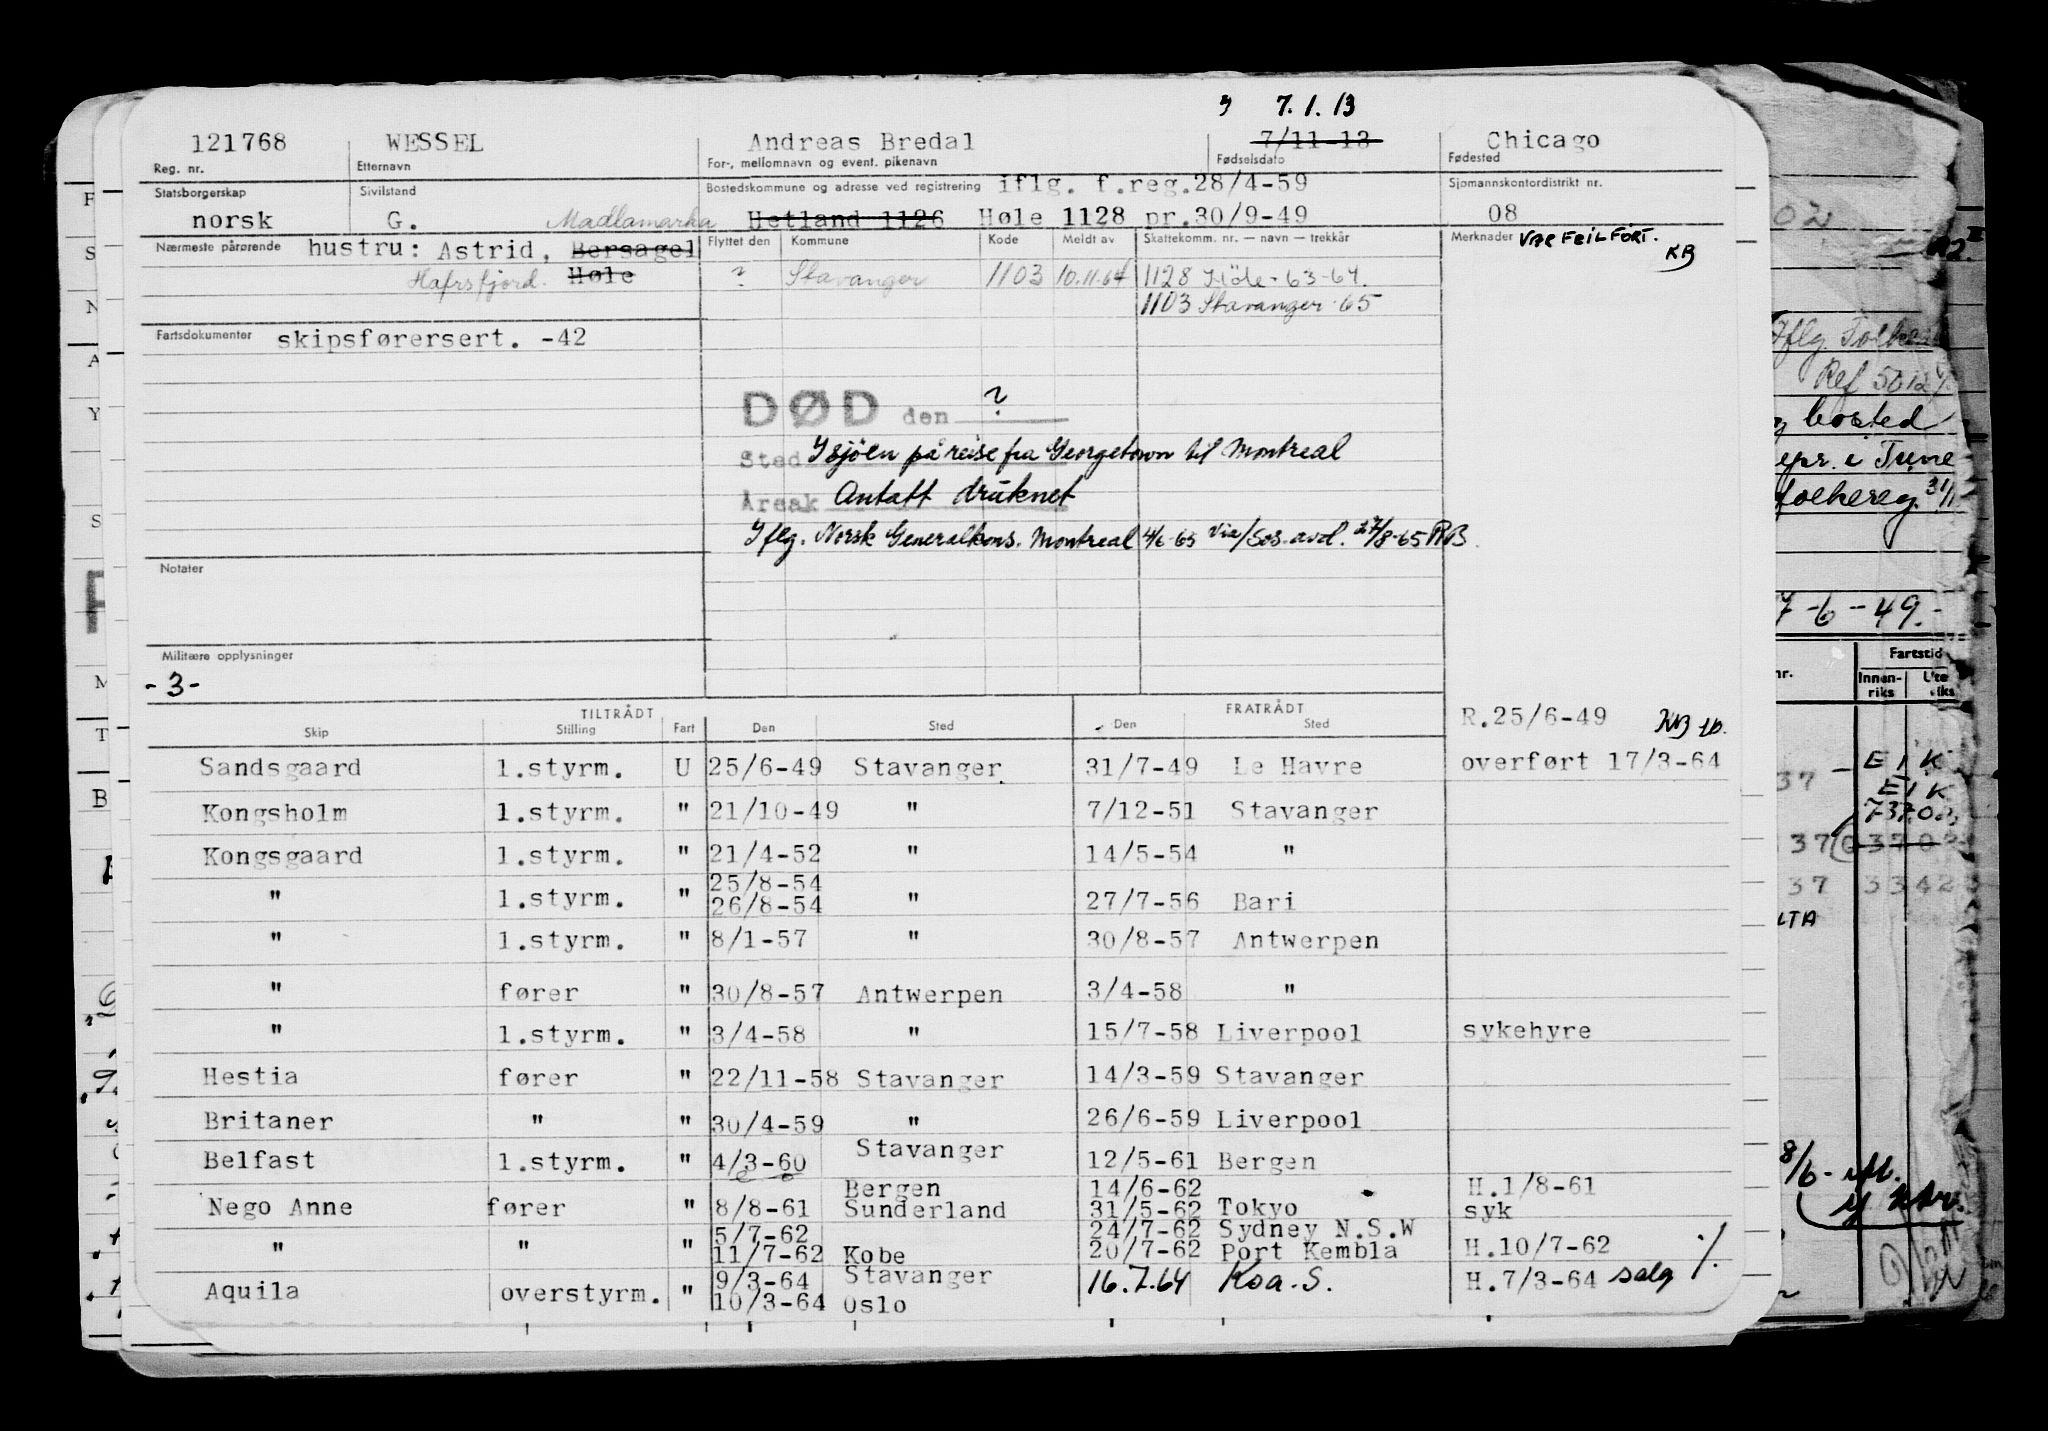 7.1.13
121768 WESSEL Andreas Bredal 7/11-13 Chicago
Reg. nr. Etternavn For-, mellomnavn og event. pikenavn Fødselsdato Fødested
Statsborgerskap Sivilstand Bostedskommune og adresse ved registrering iflg. f.reg.28/4-59 Sjømannskontordistrikt nr.
norsk G. Madlamarka Hetland 1126 Høle 1128 pr.30/9-49 08
Nærmeste pårørende hustru: Astrid, Bersagel Flyttet den Kommune Kode Meldt av Skattekomm. nr. — navn — trekkår Merknader VAR FEIL FØRT.
KB
Hafrsfjord. Høle ? Stavanger 1103 10.11.64 1128 Høle - 63-64.
1103 Stavanger 65
Fartsdokumenter skipsførersert. -42
DØD den ?
Sted I sjöen på reise fra Georgetown til Montreal
Årsak Antatt druknet
Iflg. Norsk Generalkons. Montreal 4/6-65 via/Sos.avd. 27/8-65 RB.
Notater
Militære opplysninger
-3-
TILTRÅDT FRATRÅDT R.25/6-49
Skip Stilling Fart Den Sted Den Sted
Sandsgaard 1.styrm. U 25/6-49 Stavanger 31/7-49 Le Havre overført 17/3-64
Kongsholm 1.styrm. " 21/10-49 " 7/12-51 Stavanger
Kongsgaard 1.styrm. " 21/4-52 " 14/5-54 "
25/8-54
" 1.styrm. " 26/8-54 " 27/7-56 Bari
" 1.styrm. " 8/1-57 " 30/8-57 Antwerpen
" fører " 30/8-57 Antwerpen 3/4-58 "
" 1.styrm. " 3/4-58 " 15/7-58 Liverpool sykehyre
Hestia fører " 22/11-58 Stavanger 14/3-59 Stavanger
Britaner " " 30/4-59 " 26/6-59 Liverpool
Belfast 1.styrm. " 4/3-60 Stavanger 12/5-61 Bergen
Bergen 14/6-62 H.1/8-61
Nego Anne fører " 8/8-61 Sunderland 31/5-62 Tokyo syk
5/7-62 24/7-62 Sydney N.S.W
" " " 11/7-62 Kobe 20/7-62 Port Kembla H.10/7-62 ./.
9/3-64 Stavanger
Aquila overstyrm. " 10/3-64 Oslo 16.7.64 Koa.S. H.7/3-64 salg
Iflg.
Ref
bosted
i Tune
folkereg. 31/1
7-6-49.
Fartstid
Innenriks
E I K
E I K
7370
37
3342
8/6-